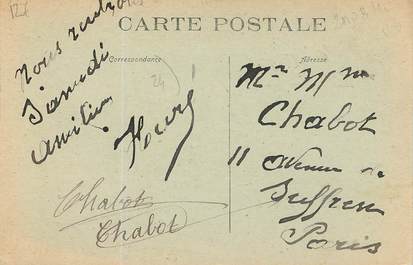 CARTE POSTALE
Correspondance
Adresse
Nous rentrons
Samedi
Amitiés
Mr Mme
Chabot
11 avenue de
Suffren
Paris
Chabot
Chabot
24